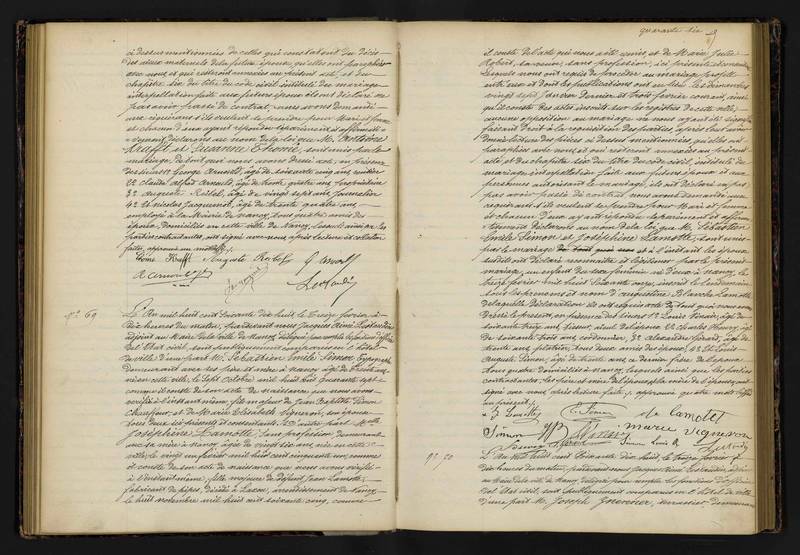 à dessus mentionnées de celles qui constatent du décès
des aïeux maternels de la future épouse, qu'elles ont paraphées
avec nous et qui resteront annexées au présent acte, et du
chapitre six du titre du code civil intitulé du mariage
interpellation faite aux futurs époux ils ont déclaré ne
pas avoir passé de contrat, nous avons demandé
aux requérants s'ils veulent se prendre pour Mari et femme
et chacun d'eux ayant répondu séparément et affirmati-
vement déclarons au nom de la loi que M.
Krafft et Suzanne sont unis par le
mariage, de tout quoi nous avons dressé acte, en présence
des sieurs 1° George Arnould, âgé de soixante cinq ans rentier
2° Claude alfred Arnould, âgé de trente quatre ans, propriétaire
3° Auguste Robel, âgé de vingt sept ans, Journalier
4° Et nicolas Jacquenot, âgé de trente quatre ans,
employé à la Mairie de nancy, tous quatre amis des
époux, domiciliés en cette ville de Nancy, Lesquels ainsi que les
parties contractantes ont signé avec nous après lecture et collation
faite, approuvé un mot
Krafft Auguste Robel G arnould
N° 69
L'An mil huit cent Soixante dix huit, le Treize février, à
Dix heures du matin, pardevant nous Jacques
adjoint au Maire de la Ville de Nancy, délégué pour remplir les fonctions d'officier
de l'état civil, sont publiquement comparus en l'hôtel
de ville d'une part M. Sébastien Emile Simon, Typographe
demeurant avec ses père et mère à nancy, âgé de trente ans
né en cette ville, le Sept Octobre mil huit huit quarante sept
comme il conste de son acte de naissance que nous avons
vérifié à l'instant même, fils majeur de Jean Baptiste Simon
chauffeur, et de Marie Elisabeth Vigneron, son épouse
tous deux ici présents et consentants. Et d'autre part Melle
Joséphine Lamotte, sans profession demeurant
avec sa mère à nancy, âgée de vingt six ans, née en cette
ville, le vingt un février mil huit cent cinquante un, comme
il conste de son acte de naissance que nous avons vérifié
à l'instant même, fille majeure de défunt Jean Lamotte,
fabricant de pipes, décédé à Laxou, arrondissement de Nancy,
le huit novembre mil huit cent soixante cinq, comme
quarante six
il conste de l'acte qui nous a été remis, et de Marie
Robert, sa veuve, sans profession, ici présente et consentante
Lesquels nous ont requis de procéder au mariage projeté
entre eux et dont les publications ont eu lieu les dimanches
vingt sept Janvier dernier et trois février courant, ainsi
qu'il conste des actes inscrits sur les registres de cette ville,
aucune opposition au mariage ne nous ayant été signifiée
faisant droit à la réquisition des parties, après leur avoir
donné lecture des pièces ci dessus mentionnées, qu'elles ont
paraphées avec nous et qui resteront annexées au présent
acte, et du chapitre six du titre du code civil, intitulé du
mariage, interpellation faite aux futurs époux et aux
personnes autorisant le mariage, ils ont déclaré ne pas
pas avoir passé de contrat, nous avons demandé aux
requérants s'ils veulent se prendre pour Mari et femme
et chacun d'eux ayant répondu séparément et affirma-
tivement déclarons au nom de la loi que M. Sébastien
Emile Simon et Joséphine Lamotte, sont unis
par le mariage et à l'instant les époux
susdits ont déclaré reconnaître et légitimer par le présent
mariage, un enfant du sexe féminin né d'eux à nancy, le
treize février mil huit Soixante onze, inscrit le lendemain
sous les prénoms et nom d'Augustine Blanche Lamotte
de laquelle déclaration ils ont requis acte. De tout quoi nous avons
dressé le présent, en présence des sieurs 1° Louis Simon, âgé de
soixante treize ans, tisseur, aïeul de l'époux 2° Charles Henry, âgé
de soixante trois ans, cordonnier, 3° Alexandre Gérard, âgé de
trente ans, platrier, tous deux amis des époux, 4° Et Louis
Auguste Simon, âgé de trente ans, frère de l'époux
tous quatre domiciliés à nancy, lesquels ainsi que les parties
contractantes, les père et mère de l'époux et la mère de l'épouse, ont
signé avec nous, après lecture faite, approuvé quatre mots
au présent.
E. Simon de Lamotte
Simon marie vigneron
Simon Louis A
N° 70
L'An mil huit cent Soixante dix huit, le treize février à
dix heures du matin, pardevant nous Jacques adjoint
au Maire de la ville de Nancy, délégué pour remplir les fonctions d'officier
de l'état civil, sont publiquement comparus en l'hôtel de ville
d'une part M. Joseph menuisier, demeurant